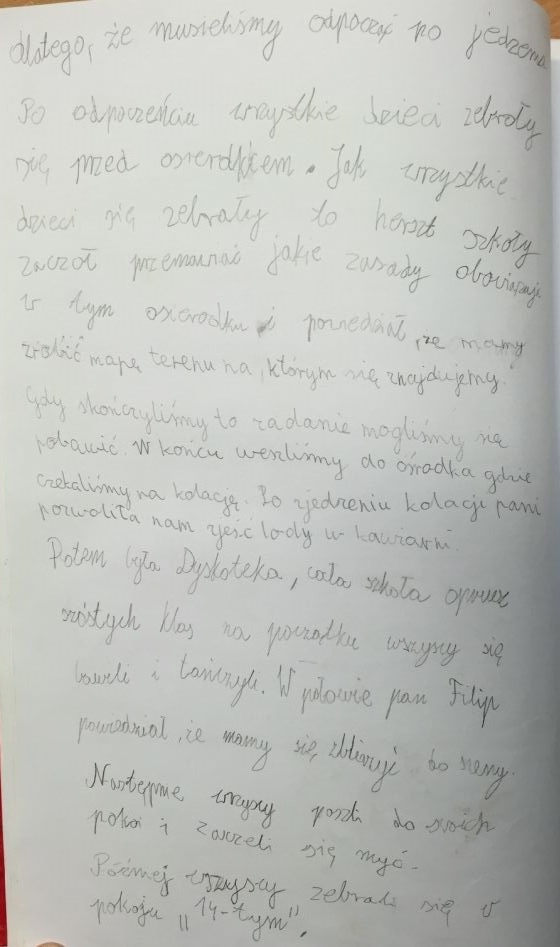 dlatego, że musieliśmy odpocząć po jedzeniu
Po odpoczeńciu wszystkie dzieci zebrały
się przed osierdkiem. Jak wszystkie
dzieci się zebrały to herszt szkoły
zaczoł przemawiać jakie zasady obowiązują
w tym osierodku i powiedział, że mamy
zrobić mapę terenu na, którym się znajdujemy.
Gdy skończyliśmy to zadanie mogliśmy się
pobawić. W końcu weszliśmy do ośrodka gdzie
czekaliśmy na kolację. Po zjedzeniu kolacji pani
pozwoliła nam zjeść lody w kawiarni.
Potem była Dyskoteka, cała szkoła oprucz
szóstych klas na początku wszyscy się
bawili i tańczyli. W połowie pan Filip
powiedział, że mamy się zbliżyć do sceny.
Następnie wszyscy poszli do swoich
pokoi i zaczeli się myć.
Później wszyscy zebrali się w
pokoju "14-tym".